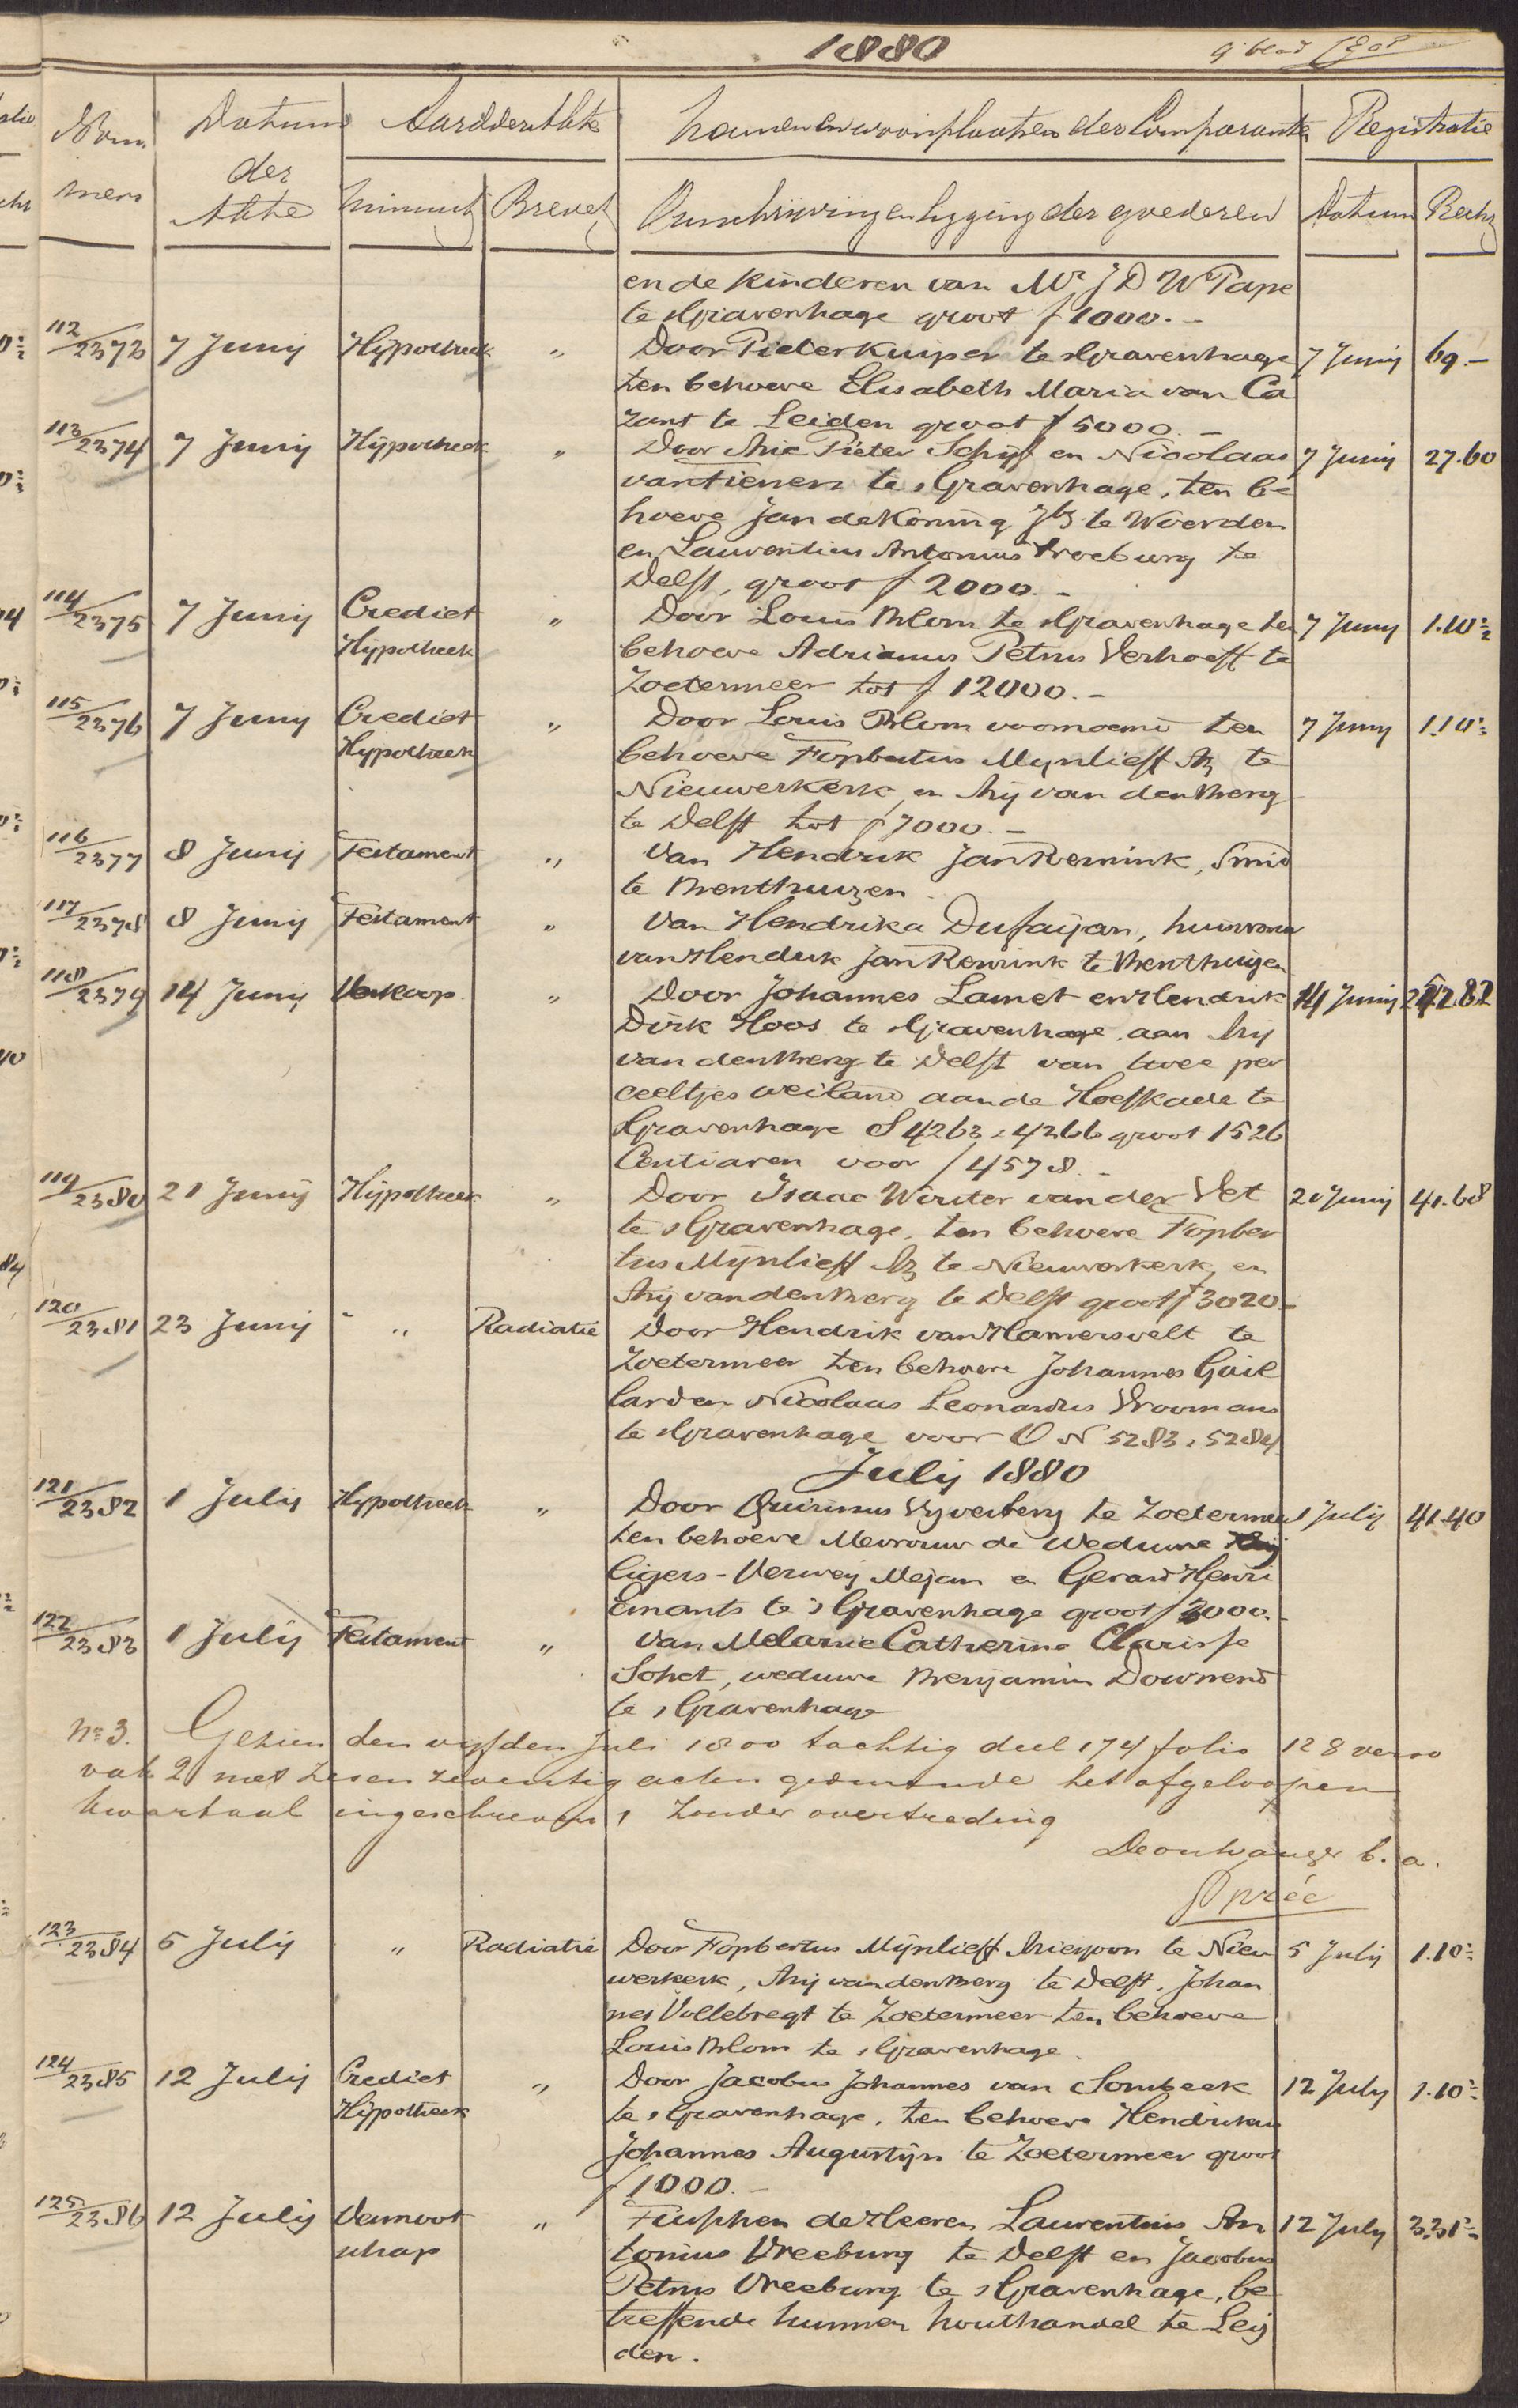 1880
9e blad
Nom
mers
Datum
der
Akte
Aard der Akte
Minuut
Brevet
Namen en woonplaatsen der Comparanten
Omschrijving en ligging der goederen
Registratie
Datum
Recht
en de Kinderen van Mr J D W Pape
te sGravenhage groot f 1000.-
112/2373 7 Junij Hijpotheek " Door Pieter Kuiper te sGravenhage 7 Junij 69.-
ten behoeve Elisabeth Maria van Ca
zant te Leiden groot f 5000.-
113/2374 7 Junij Hijpotheek " Door Arie Pieter Schijf en Nicolaas 7 Junij 27.60
van Tienen te sGravenhage, ten be
hoeve Jan de Koning Jbz te Woerden
en Lauwentius Antonius Vreeburg te
Delft, groot f 2000.-
114/2375 7 Junij Crediet " Door Louis Blom te sGravenhage ten 7 Junij 1.10½
Hijpotheek behoeve Adrianus Petrus Verhoeff te
Zoetermeer tot f 12000.-
115/2376 7 Junij Crediet " Door Louis Blom voornoemd ten 7 Junij 1.10½
Hypotheek behoeve Fopbertus Mynlieff Az te
Nieuwerkerk en Arij van den Berg
te Delft tot f 7000.-
116/2377 8 Junij Testament " Van Hendrik Jan Remink, Smid
te Benthuizen
117/2378 8 Junij Testament " Van Hendrika Dufaijan, huisvrouw
van Hendrik Jan Remink te Benthuizen
118/2379 14 Junij Verkoop " Door Johannes Lamet en Hendrik 14 Junij 272.82
Dirk Hoos te sGravenhage, aan Arij
van den Berg te Delft van twee per
ceeltjes weiland aan de Hoefkade te
sGravenhage S 4263, 4266 groot 1526
Centiaren voor f 4578.-
119/2380 21 Junij Hijpotheek " Door Isaac Wouter van der Vet 21 Junij 41.68
te sGravenhage, ten behoeve Fopber
tus Mijnlieff Az te Nieuwerkerk, en
Arij van den Berg te Delft groot f 3020.-
120/2381 23 Junij " Radiatie Door Hendrik van Hamersvelt te
Zoetermeer ten behoeve Johannes Gail
lard en Nicolaas Leonardus Vroomans
te sGravenhage voor O N 5283, 5284
Julij 1880
121/2382 1 Julij Hypotheek " Door Quirinus Vyverberg te Zoetermeer 1 Julij 41.40
ten behoeve Mevrouw de Weduwe
ligers-Verweij Mejan en Gerard Henri
Emants te sGravenhage groot f 3000.-
122/2383 1 Julij Testament " Van Melanie Catherine Clarisse
Sohet, weduwe Benjamin Downend
te sGravenhage
No 3. Gezien den vijfden Juli 1800 tachtig deel 174 folio 128 verso
vak 2 met zes en zeventig acten gedurende het afgeloopen
kwartaal ingeschreven, zonder overtreding
De ontvanger b. a.
123/2384 5 Julij " Radiatie Door Fopbertus Mijnlieff Arieszoon te Nieu 5 Julij 1.10½
werkerk, Arij van den Berg te Delft, Johan
nes Vollebregt te Zoetermeer ten behoeve
Louis Blom te sGravenhage.
124/2385 12 Julij Crediet " Door Jacobus Johannes van Sombeek 12 July 1.10½
Hijpotheek te sGravenhage, ten behoeve Hendrikus
Johannes Augustijn te Zoetermeer groot
f 1000.-
125/2386 12 Julij Vennoot " Tusschen de Heeren Laurentius An 12 July 3.31½
schap tonius Vreeburg te Delft en Jacobus
Petrus Vreeburg te sGravenhage, be
treffende hunnen houthandel te Leij
den.